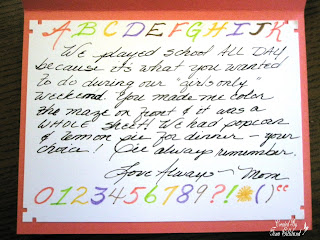 A B C D E F G H I J K
We played school ALL DAY
because it's what you wanted
to do during our "girls only"
weekend. You made me color
the maze on front & it was a
WHOLE sheet! We had popcorn
& lemon pie for dinner - your
choice! I'll always remember.
Love Always - Mom
0123456789?!✹()“
Created By